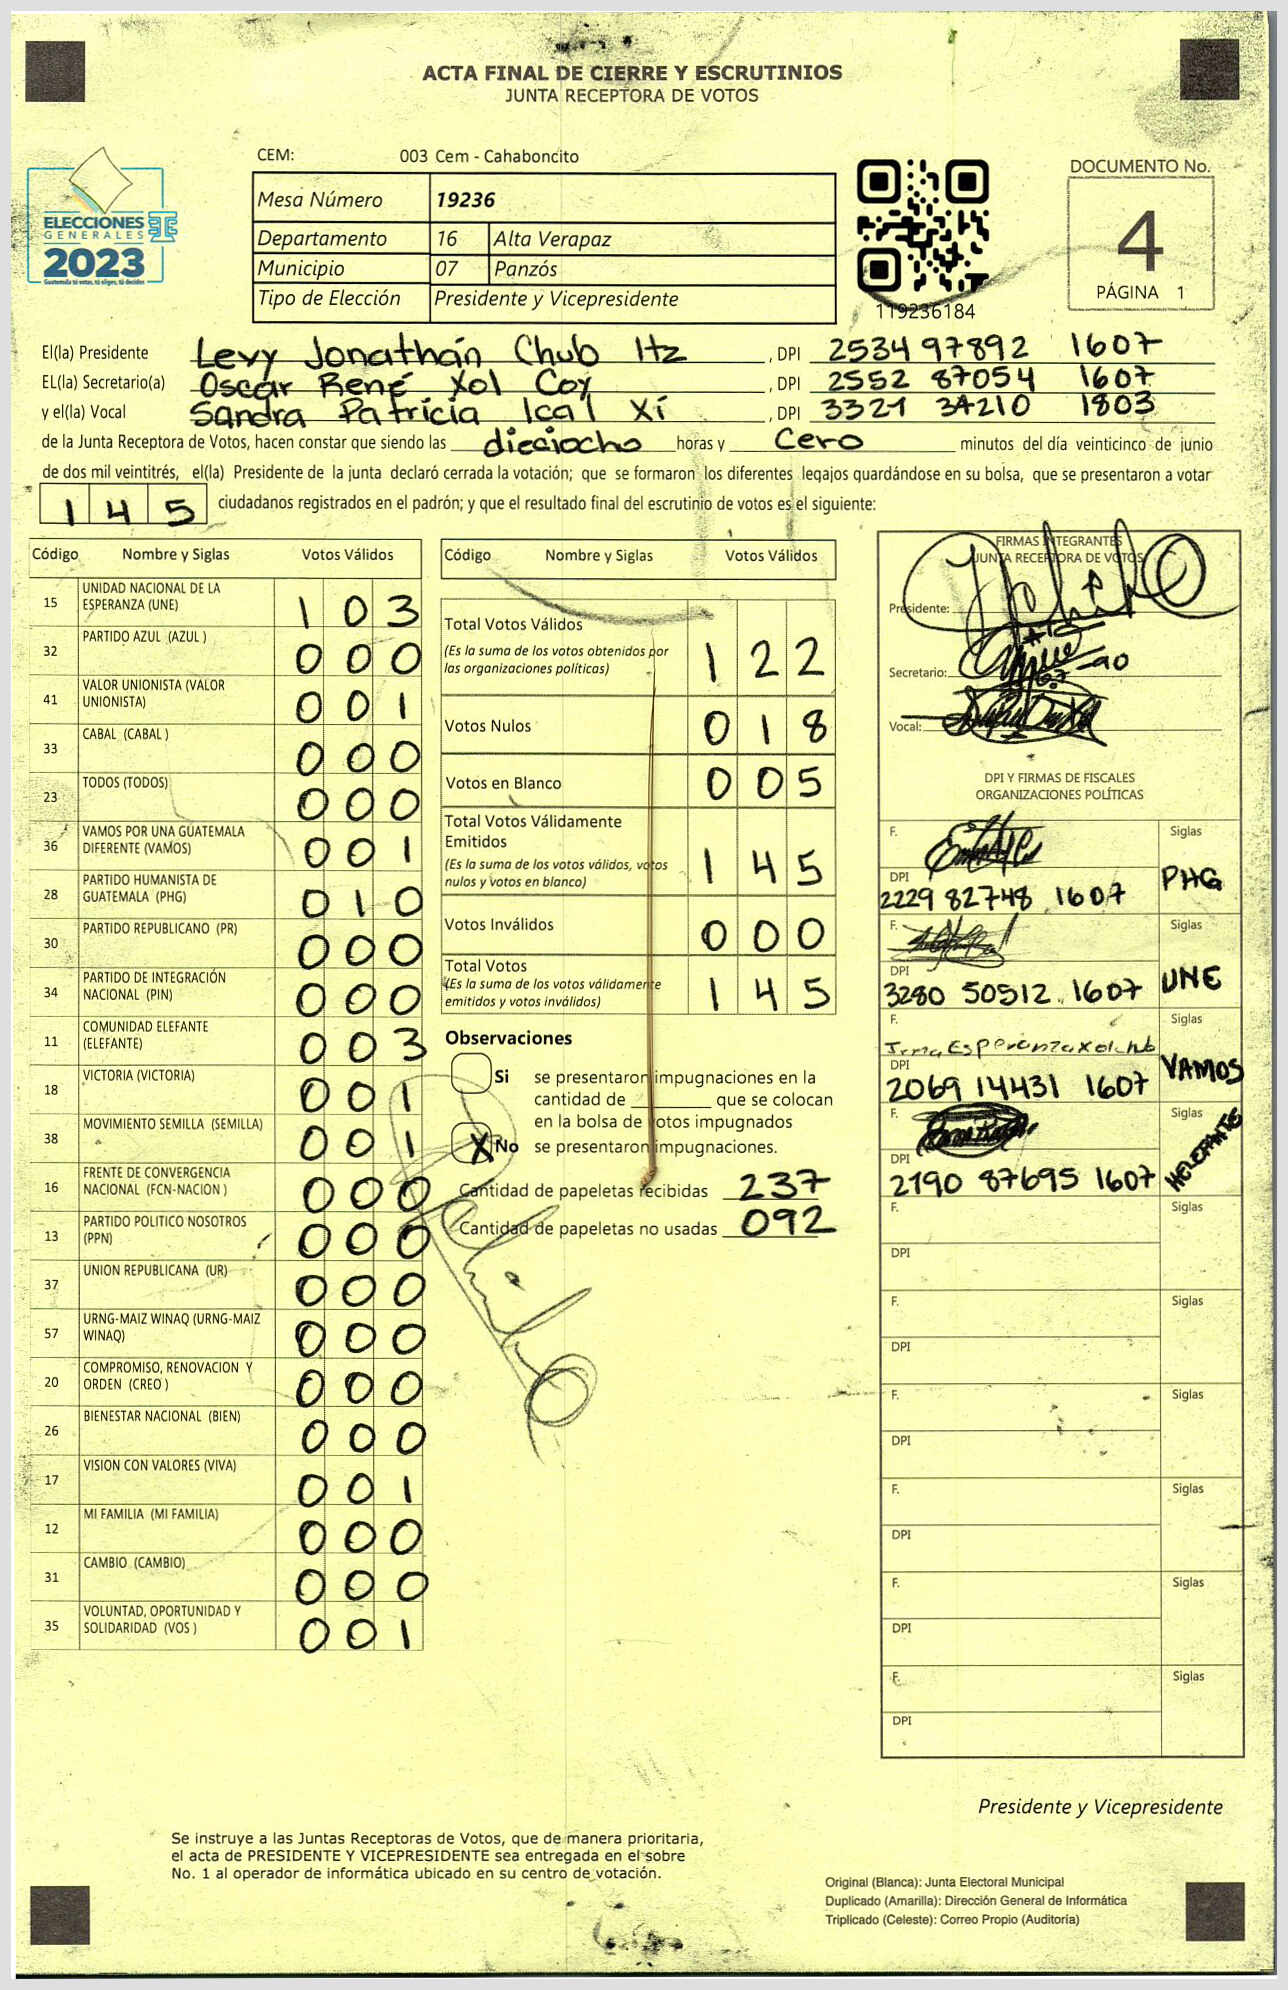 ACTA FINAL DE CIERRE Y ESCRUTINIOS
JUNTA RECEPTORA DE VOTOS
CEM: 003 Cem - Cahaboncito
ELECCIONES
GENERALES
2023
Guatemala tú votas, tú eliges, tú decides
Mesa Número 19236
Departamento 16 Alta Verapaz
Municipio 07 Panzós
Tipo de Elección Presidente y Vicepresidente
119236184
DOCUMENTO No.
4
PÁGINA 1
El(la) Presidente Levy Jonathán Chub Itz , DPI 2534 97892 1607
EL(la) Secretario(a) Oscar René Xol Coy , DPI 2552 87054 1607
y el(la) Vocal Sandra Patricia Ical Xí , DPI 3321 34210 1803
de la Junta Receptora de Votos, hacen constar que siendo las dieciocho horas y Cero minutos del día veinticinco de junio
de dos mil veintitrés, el(la) Presidente de la junta declaró cerrada la votación; que se formaron los diferentes legajos guardándose en su bolsa, que se presentaron a votar
145 ciudadanos registrados en el padrón; y que el resultado final del escrutinio de votos es el siguiente:
Código Nombre y Siglas Votos Válidos
15 UNIDAD NACIONAL DE LA ESPERANZA (UNE) 103
32 PARTIDO AZUL (AZUL ) 000
41 VALOR UNIONISTA (VALOR UNIONISTA) 001
33 CABAL (CABAL ) 000
23 TODOS (TODOS) 000
36 VAMOS POR UNA GUATEMALA DIFERENTE (VAMOS) 001
28 PARTIDO HUMANISTA DE GUATEMALA (PHG) 010
30 PARTIDO REPUBLICANO (PR) 000
34 PARTIDO DE INTEGRACIÓN NACIONAL (PIN) 000
11 COMUNIDAD ELEFANTE (ELEFANTE) 003
18 VICTORIA (VICTORIA) 001
38 MOVIMIENTO SEMILLA (SEMILLA) 001
16 FRENTE DE CONVERGENCIA NACIONAL (FCN-NACION ) 000
13 PARTIDO POLITICO NOSOTROS (PPN) 000
37 UNION REPUBLICANA (UR) 000
57 URNG-MAIZ WINAQ (URNG-MAIZ WINAQ) 000
20 COMPROMISO, RENOVACION Y ORDEN (CREO ) 000
26 BIENESTAR NACIONAL (BIEN) 000
17 VISION CON VALORES (VIVA) 001
12 MI FAMILIA (MI FAMILIA) 000
31 CAMBIO (CAMBIO) 000
35 VOLUNTAD, OPORTUNIDAD Y SOLIDARIDAD (VOS ) 001
Código Nombre y Siglas Votos Válidos
Total Votos Válidos 122
(Es la suma de los votos obtenidos por
las organizaciones políticas)
Votos Nulos 018
Votos en Blanco 005
Total Votos Válidamente
Emitidos 145
(Es la suma de los votos válidos, votos
nulos y votos en blanco)
Votos Inválidos 000
Total Votos 145
(Es la suma de los votos válidamente
emitidos y votos inválidos)
Observaciones
Si se presentaron impugnaciones en la
cantidad de ________ que se colocan
en la bolsa de votos impugnados
X No se presentaron impugnaciones.
Cantidad de papeletas recibidas 237
Cantidad de papeletas no usadas 092
FIRMAS INTEGRANTES
JUNTA RECEPTORA DE VOTOS
Presidente:
Secretario:
Vocal:
DPI Y FIRMAS DE FISCALES
ORGANIZACIONES POLÍTICAS
F. Siglas
DPI PHG
2229 82748 1607
F. Siglas
DPI UNE
3280 50512 1607
F. Siglas
Irma Esperanza Xol chub
DPI VAMOS
2069 14431 1607
F. Siglas
DPI HELEFANTE
2190 87695 1607
F. Siglas
DPI
F. Siglas
DPI
F. Siglas
DPI
F. Siglas
DPI
F. Siglas
DPI
F. Siglas
DPI
Presidente y Vicepresidente
Se instruye a las Juntas Receptoras de Votos, que de manera prioritaria,
el acta de PRESIDENTE Y VICEPRESIDENTE sea entregada en el sobre
No. 1 al operador de informática ubicado en su centro de votación.
Original (Blanca): Junta Electoral Municipal
Duplicado (Amarilla): Dirección General de Informática
Triplicado (Celeste): Correo Propio (Auditoría)